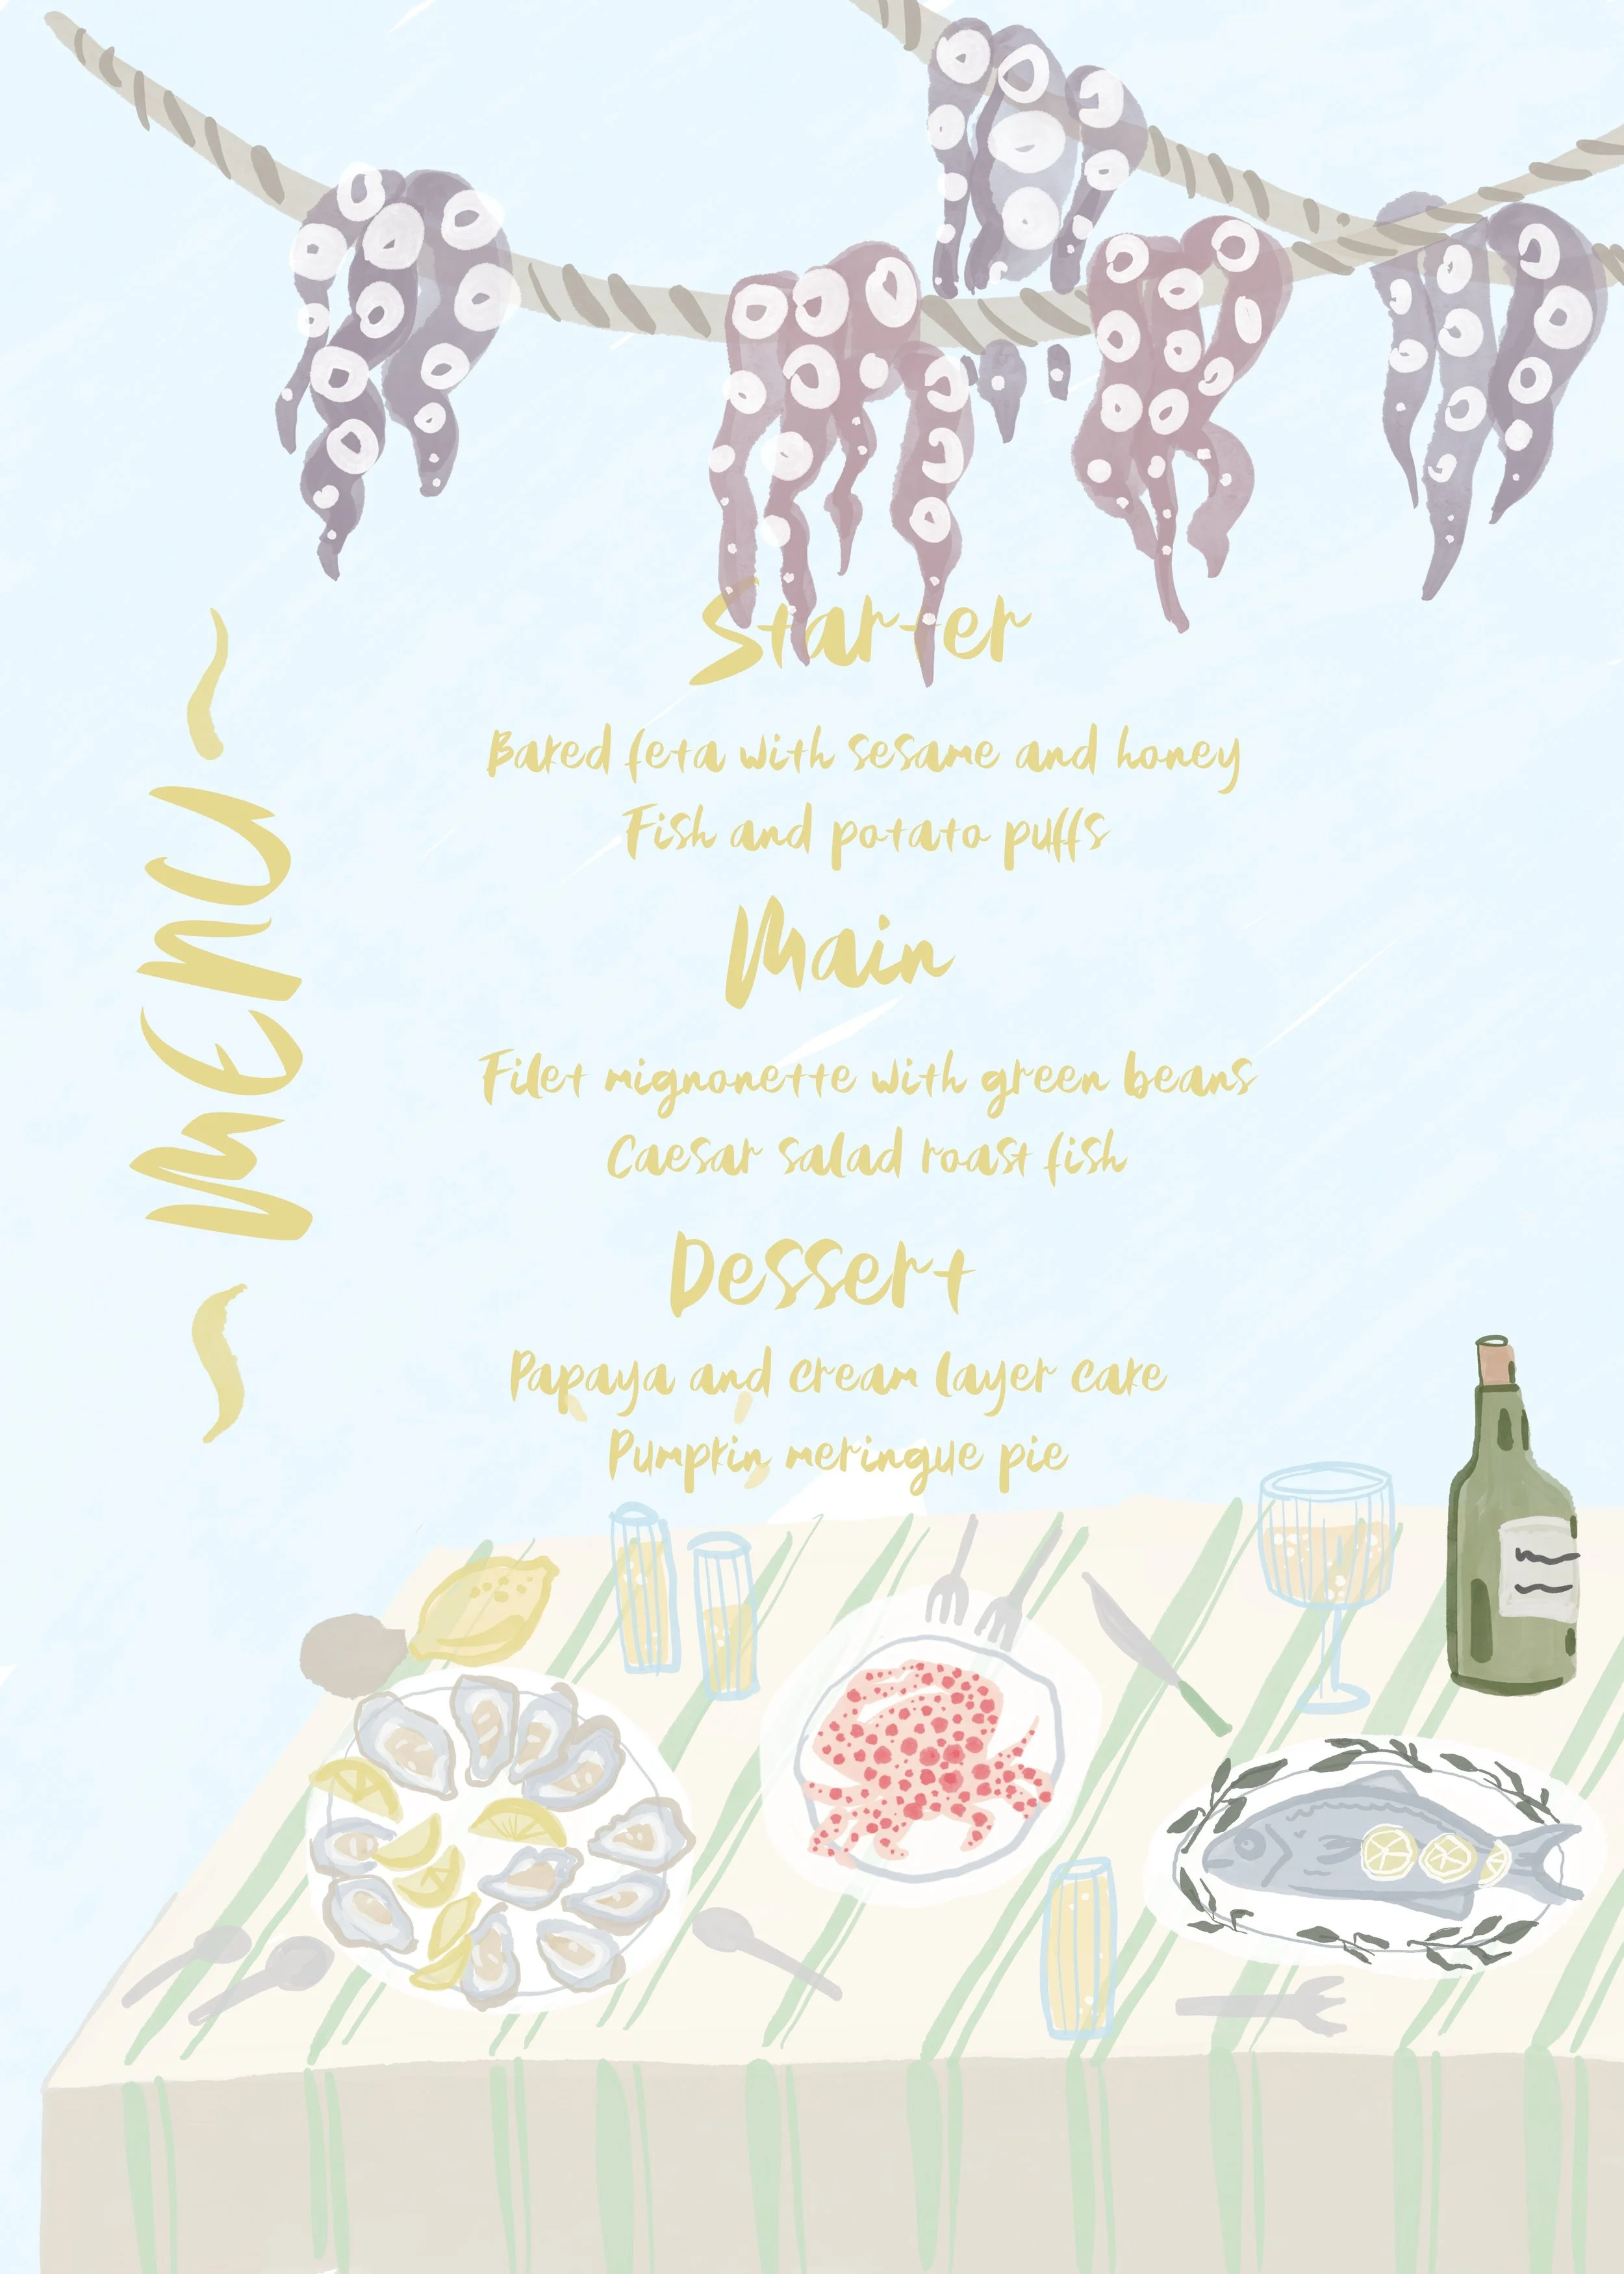 MENU
Starter
Baked feta with sesame and honey
Fish and potato puffs
Main
Filet mignonette with green beans
Caesar salad roast fish
Dessert
Papaya and cream layer cake
Pumpkin meringue pie